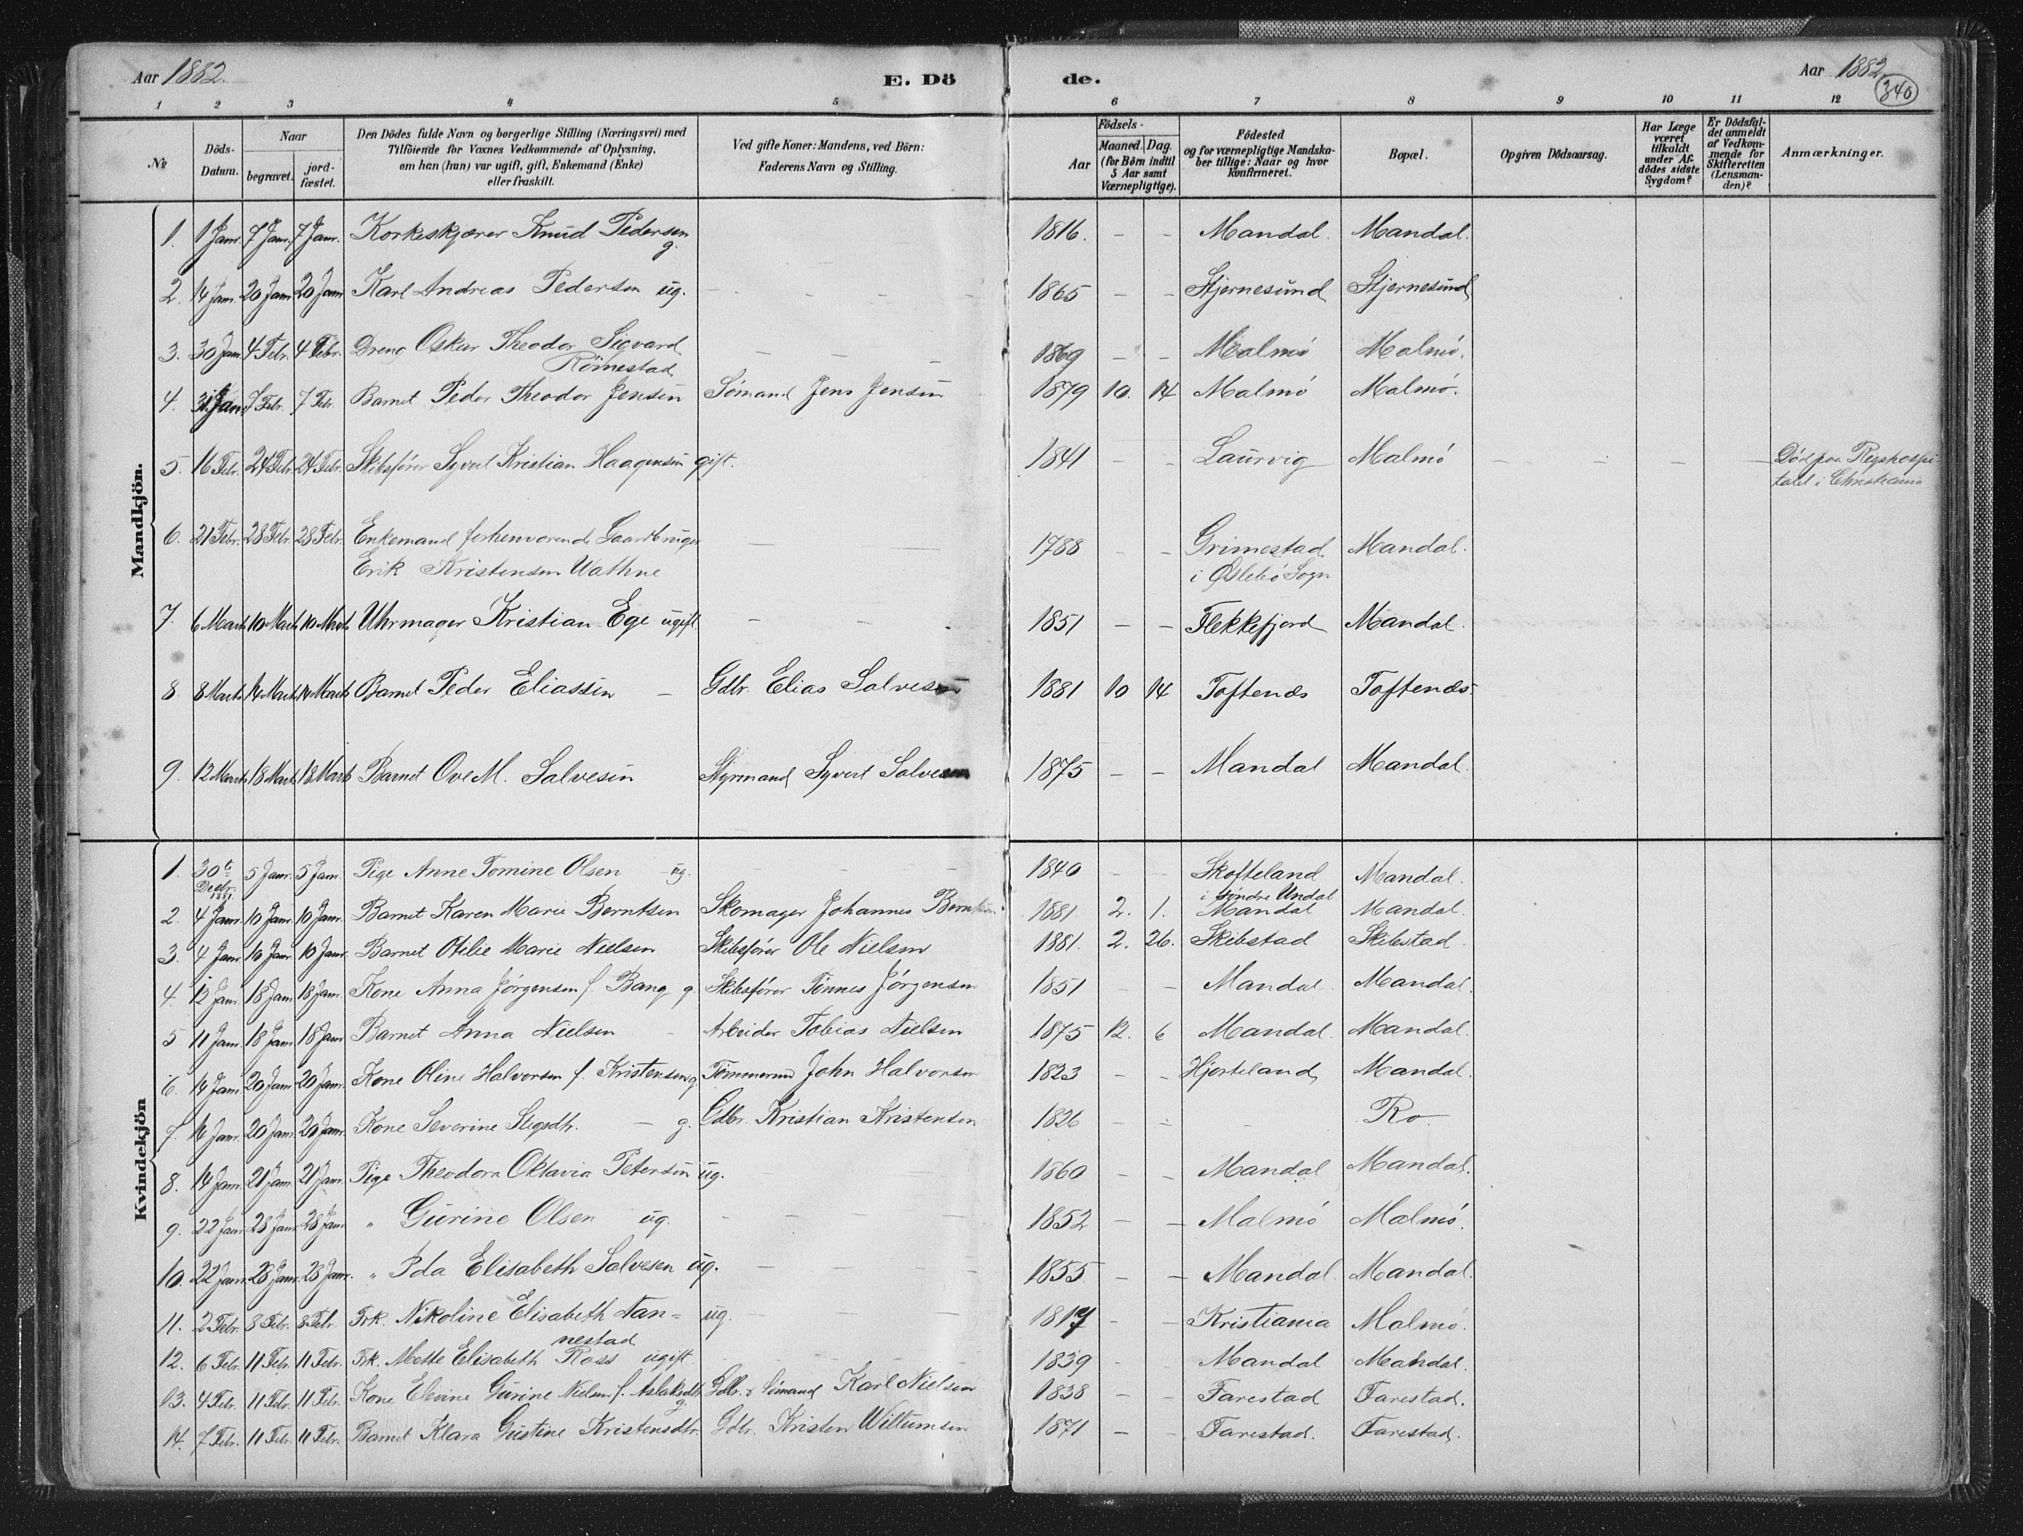 Aar 1882. E. Dö de. Aar 1882
340
1 2 3 4 5 6 7 8 9 10 11 12
No
Döds-Datum.
Naar
begravet. jord-fæstet.
Den Dödes fulde Navn og borgerlige Stilling (Næringsvei) med
Tilföiende for Voxnes Vedkommende af Oplysning,
om han (hun) var ugift, gift, Enkemand (Enke)
eller fraskilt.
Ved gifte Koner: Mandens, ved Börn:
Faderens Navn og Stilling.
Födsels-
Aar
Maaned. Dag.
(for Börn indtil
5 Aar samt
Værnepligtige).
Födested
og for værnepligtige Mandska-
ber tillige: Naar og hvor
konfirmeret.
Bopæl.
Opgiven Dödsaarsag.
Har Læge
været
tilkaldt
under Af-
dödes sidste
Sygdom?
Er Dödsfal-
det anmeldt
af Vedkom-
mende for
Skifteretten
(Lensman-
den)?
Anmærkninger.
Mandkjön.
1. 1 Janr. 7 Janr. 7 Janr. Korkeskjærer Knud Pedersen g. 1816. – – Mandal. Mandal.
2. 14 Janr. 20 Janr. 20 Janr. Karl Andreas Pedersen ug. – – – 1865 – – Stjernesund Stjernesund
3. 30 Janr. 4 Febr. 4 Febr. Dreng Oskar Theodor Sigvard – – – 1869 – – Malmö Malmö.
Römestad
4. 31 Janr. 7 Febr. 7 Febr. Barnet Peder Theodor Jensen Sømand Jens Jensen 1879 10. 14 Malmö Malmö.
5. 16 Febr. 24 Febr. 24 Febr. Skibsfører Syvert Kristian Haagensen gift. 1841 – – Laurvig Malmö – – – – Död paa Rigshospi
talet i Christiania
6. 21 Febr. 28 Febr. 28 Febr. Enkemand forhenværende Gaardbruger – – 1788 – – Grimestad Mandal.
Erik Kristensen Wathne i Øslebö Sogn
7. 6 Marts 10 Marts 10 Marts Uhrmager Kristian Ege ugift – – 1851 – – Flekkefjord Mandal.
8. 8 Marts 14 Marts 14 Marts Barnet Peder Eliassen – Gdbr. Elias Salvesen 1881 10 14 Toftenæs Toftenæs.
9. 12 Marts 18 Marts 18 Marts Barnet Ove M. Salvesen Styrmand Syvert Salvesen 1875 – – Mandal Mandal.
Kvindekjön
1. 30te 5 Janr. 5 Janr. Pige Anne Tomine Olsen – ug. – – 1840 – – Skofteland Mandal.
Decbr. 1881. i Söndre Undal
2. 4 Janr. 10 Janr. 10 Janr. Barnet Karen Marie Berntsen Skomager Johannes Berntsen 1881. 2. 1. Mandal Mandal.
3. 4 Janr. 10 Janr. 10 Janr. Barnet Otelie Marie Nielsen Skibsfører Ole Nielsen 1881. 2. 26. Skibstad Skibstad.
4. 12 Janr. 18 Janr. 18 Janr. Kone Anna Jørgensen f. Bang g. Skibsfører Tønnes Jørgensen 1851 – – Mandal. Mandal.
5 11 Janr. 18 Janr. 18 Janr Barnet Anna Nielsen – Arbeider Tobias Nielsen 1875 12. 6 Mandal. Mandal.
6. 14 Janr. 20 Janr. 20 Janr. Kone Oline Halvorsen f. Kristensen g. Tømmermd John Halvorsen 1823 – – Hjorteland Mandal.
7. 16 Janr. 20 Janr. 20 Janr. Kone Severine – g. Gdbr. Kristian Kristensen 1826 – – Ro.
8. 14 Janr. 21 Janr. 21 Janr. Pige Theodora Oktavia Petersen ug. – – – 1860 – – Mandal Mandal.
9. 22 Janr 28 Janr. 28 Janr. " Gurine Olsen ug. – – – 1852 – – Malmö Malmö.
10. 22 Janr. 28 Janr. 28 Janr. " Ida Elisabeth Salvesen ug. – – – 1855 – – Mandal. Mandal.
11. 2 Febr. 8 Febr. 8 Febr. Frk. Nikoline Elisabeth Nan= ug. – – – 1817 – – Kristiania Malmö.
nestad
12. 6 Febr. 11 Febr. 11 Febr. Frk. Mette Elisabeth Ross ugift – – – 1839 – – Mandal Mandal.
13. 4 Febr. 11 Febr. 11 Febr. Kone Elevine Gurine Nielsen f. Aslaksdtr. g. Gdbr. & Sømand Karl Nielsen 1838 – – Farestad Farestad.
14. 7 Febr. 11 Febr. 11 Febr. Barnet Klara Gustine Kristensdtr. Gdbr. Kristen Willumsen 1871 – – Farestad. Farestad.